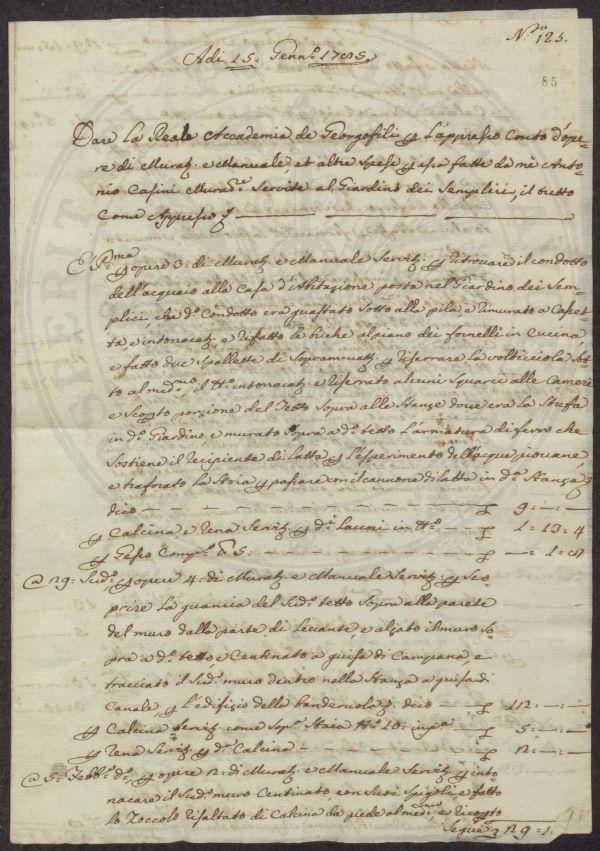 N.ro 125.
85
Adi 15: Genn.o 1785
Dare La Reale Accademia de Georgofili p L'appresso Conto d'ope-
re di Murat.e e Manuale, et altre Spese p essa fatte da me Anto-
nio Casini Murat.re Servite al Giardino dei Semplici, il tutto
Come Appresso p
P.ma
p opere 3: di Murat.e e Manuale Servit.e p ritrovare il condotto
dell'acquaio alla Casa d'Abitazione posta nel Giardino dei Sem-
plici, che d.o Condotto era guastato sotto alla pila, e rimurato a Caset-
ta e intonacat.o e rifatto le buche al piano dei fornelli in Cucina,
e fatto due Spallette di Soprammatt.e p riserrare La volticciola sot-
to al med.mo, il tt.o intonacat.o e riserrato alcuni Squarci alle Camere
e Scop.to porzione del Tetto Sopra alle Stanze dove era La Stufa
in d.o Giardino e murato Sopra a d.o tetto L'armatura di ferro che
Sostiene il Recipiente di Latta p L'esperimento dell'acque piovane,
e traforato La Stoia p passare con il cannone di latta in d.a Stanza p
dico — p 9: — : —
p Calcina e Rena Servit.e p d.i Lavori in tt.o — p 1: 13: 4
p Gesso Comp.o lb 5: — p —: 1: 8
@ 29: Sud.o p opere 4: di Murat.e e Manuale Servit.e p Sco-
prire La guancia del Sud.o tetto Sopra alla parete
del muro dalla parte di Levante, e alzato il muro So-
pra a d.o tetto, e Centinato a guisa di Campana, e
tracciato il Sud.o muro dentro nella Stanza a guisa di
Canale, p L'edifizio della banderuola p dico — p 12: — : —
p Calcina Servit.e come Sop.a Staia N.o 10: — p 5: — : —
p Rena Servit.a p d.a Calcina — p 2: — : —
@ 5: Febb.o d.o p opere 2: di Murat.e e Manuale Servit.e p into-
nacare il Sud.o muro Centinato con Suoi Spigoli, e fatto
lo Zoccolo risaltato di Calcina da piede al med.mo e ricop.to
Segue p 29: 15: